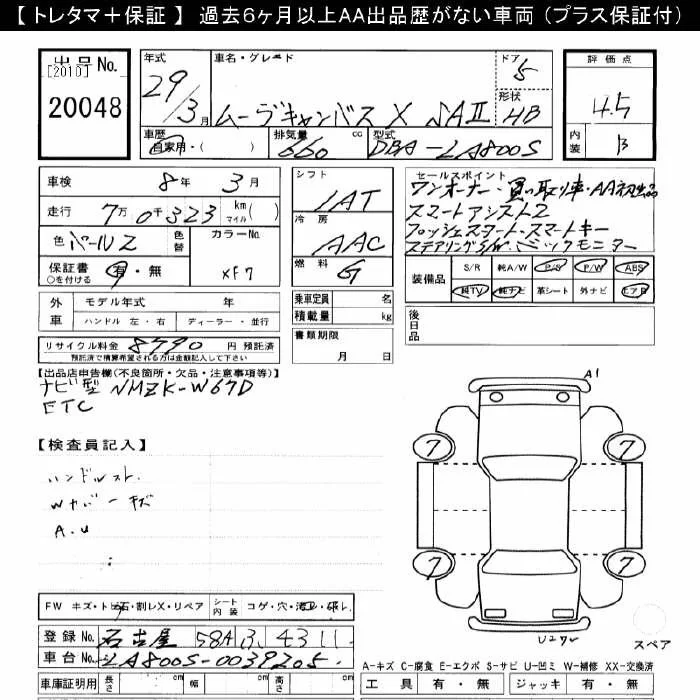 【 トレタマ＋保証 】 過去6ヶ月以上AA出品歴がない車両（プラス保証付）
出品No.
[2010]
20048
年式
29/3月
車名・グレード
ムーヴキャンバス X SAⅡ
ドア
5
形状
HB
評価点
4.5
内装
B
車歴
自家用・( )
排気量
660 cc
型式
DBA-LA800S
車検 8年 3月
走行 7万0千323 km マイル( )
色 パールZ 色替
カラーNo.
XF7
保証書 有・無
○を付ける
外車
モデル年式 年
ハンドル 左・右 ディーラー・並行
リサイクル料金 8790 円 預託済
預託済で積算希望される方は金額記入して下さい
シフト
IAT
冷房
AAC
燃料
G
乗車定員 名
積載量 kg
書類期限
月 日
セールスポイント
ワンオーナー・買い取り車・AA初出品
スマートアシスト2
プッシュスタート・スマートキー
ステアリングSW・バックモニター
装備品
S/R 純A/W P/S P/W ABS
純TV 純ナビ 革シート 外ナビ エアB
後日品
【出品店申告欄(不良箇所・欠品・注意事項等)】
ナビ型 NMZK-W67D
ETC
【検査員記入】
ハンドルスト.
Wカバーキズ
A.U
A1
7 7
7 7
U2
スペア
FW キズ・トビ石・割レX・リペア
シート内装 コゲ・穴・汚レ・破レ
登録No. 名古屋 58A 4311
車台No. LA800S-0039205
車庫証明用 長さ cm 幅 cm 高さ cm
A-キズ C-腐食 E-エクボ S-サビ U-凹ミ W-補修 XX-交換済
工具 有・無 ジャッキ 有・無